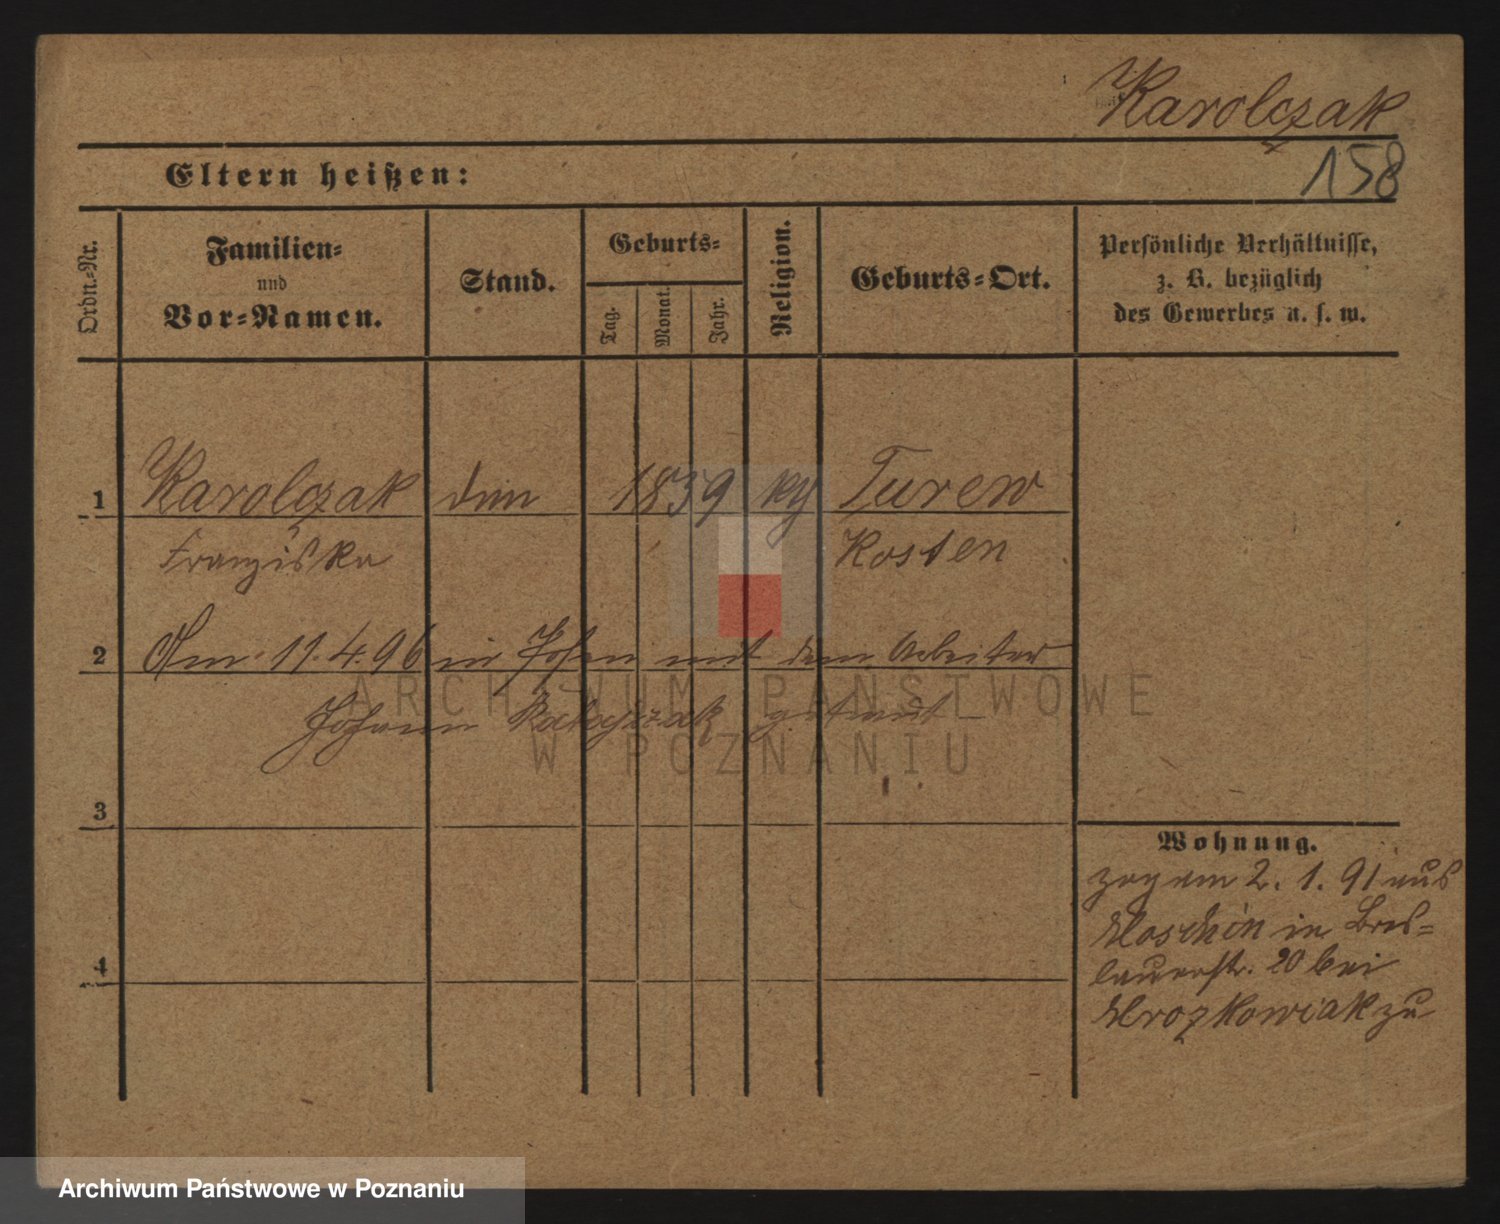 Karolczak
158
Eltern heißen:
Ordn.-Nr.
Familien-
und
Vor-Namen.
Stand.
Geburts-
Tag.
Monat.
Jahr.
Religion.
Geburts-Ort.
Persönliche Verhältnisse,
z. B. bezüglich
des Gewerbes u. s. w.
1 Karolczak 1839 Turew
Franziska Kosten
2 Am 11.4.96 in Posen mit dem Arbeiter
Johann getraut
3
4
Wohnung.
zog am 2. 1. 91 aus
Moschin in Bres-
lauerstr. 20 bei
Mrozkowiak zu
ARCHIWUM PAŃSTWOWE
W POZNANIU
Archiwum Państwowe w Poznaniu